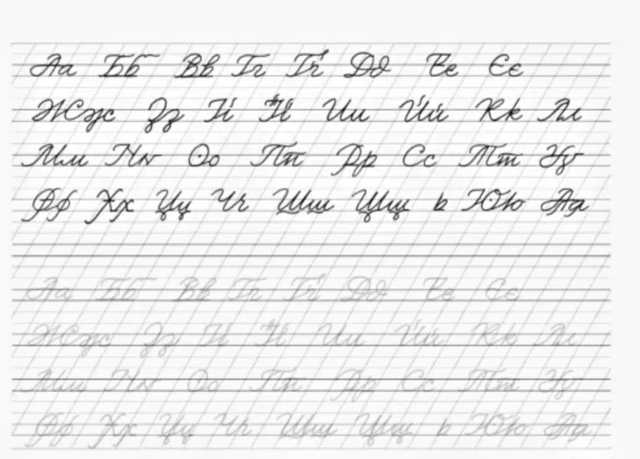 Аа Бб Вв Гг Ґґ Дд Ее Єє
Жж Зз Іі Її Ии Йй Кк Лл
Мм Нн Оо Пп Рр Сс Тт Уу
Фф Хх Цц Чч Шш Щщ ь Юю Яя
Аа Бб Вв Гг Ґґ Дд Ее Єє
Жж Зз Іі Її Ии Йй Кк Лл
Мм Нн Оо Пп Рр Сс Тт Уу
Фф Хх Цц Чч Шш Щщ ь Юю Яя